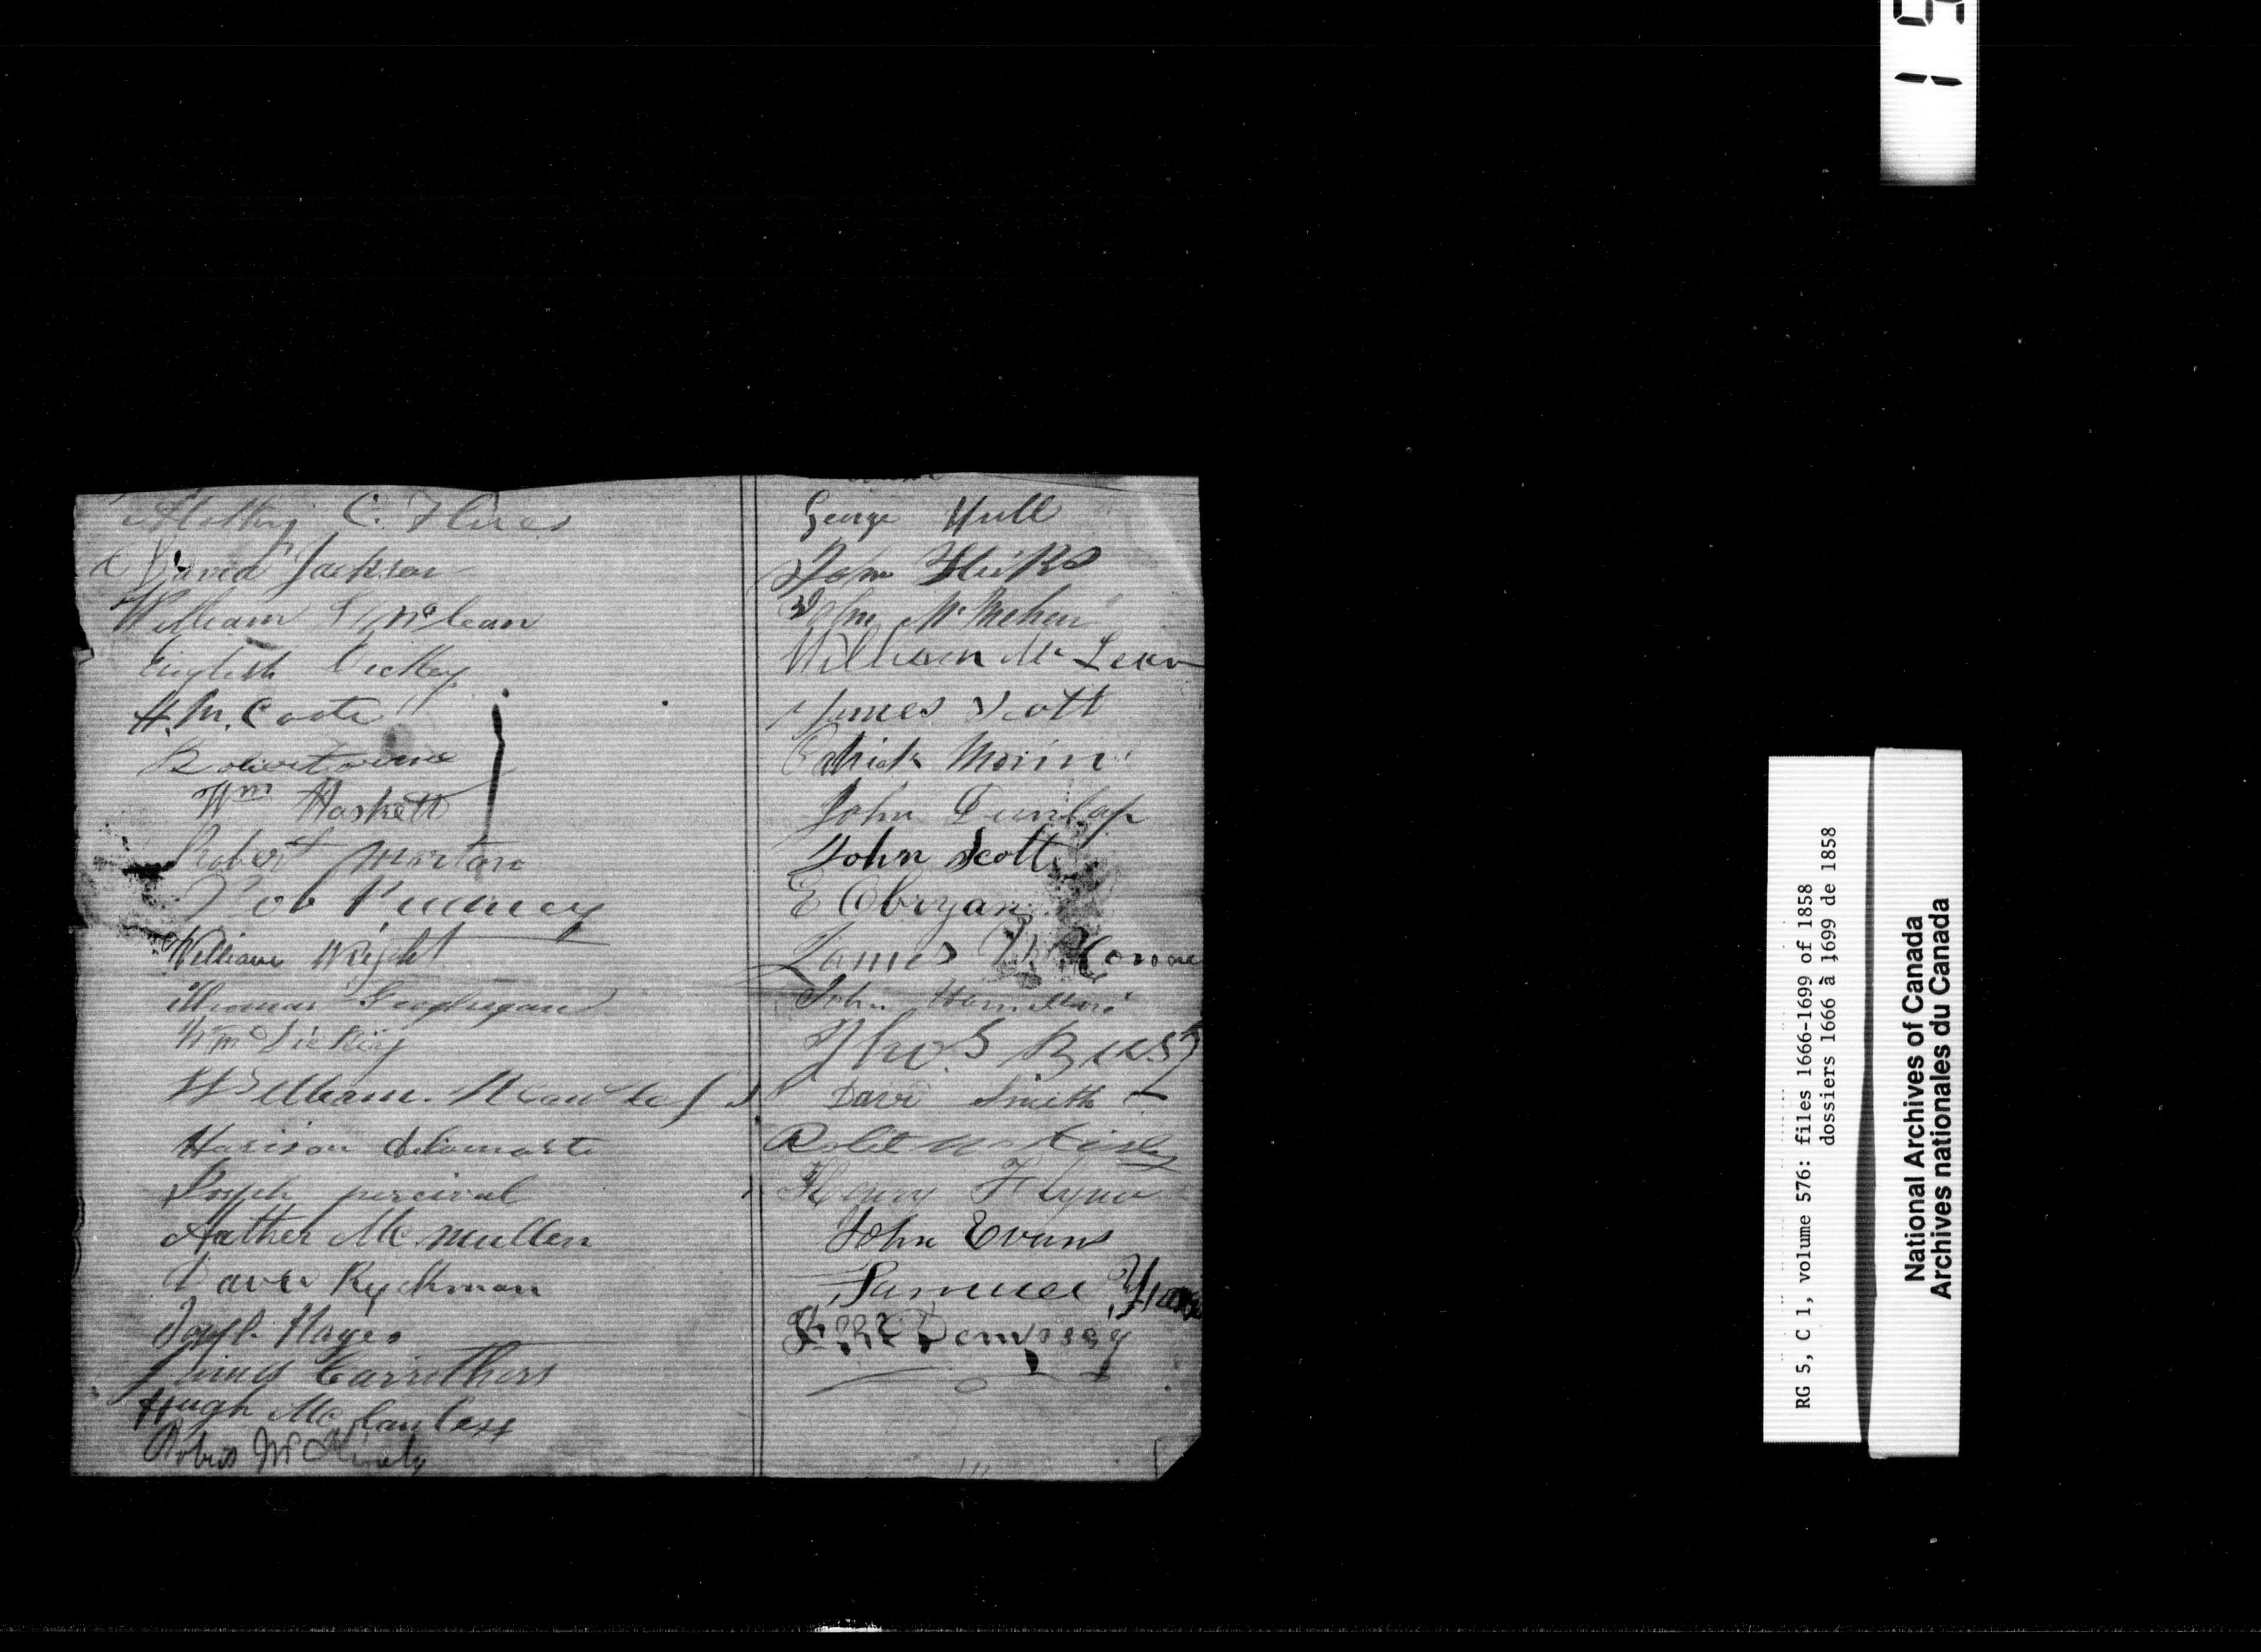 C. Flures
David Jackson
William McLean
English Dickey
H. M. Coote
Robert
Wm Haskett
Robert Morton
Rob
William Wright
Thomas Geoghegan
Wm Dickey
William
Harison delamarte
Joseph percival
Arther McMullen
Davd Ryckman
Joseph Hayes
James Carruthers
Hugh McCanless
Robert McKinely
George Hull
John Hicks
John McMehen
William McLean
James Scott
Patrick Morin
John Dunlap
John Scott
E Obryan
James
John Hamilton
Thos Bust
Davi Smith
Robt McKinley
Henry Flynn
John Evans
Samuel
Dempssey
RG 5, C 1, volume 576: files 1666-1699 of 1858
dossiers 1666 à 1699 de 1858
National Archives of Canada
Archives nationales du Canada